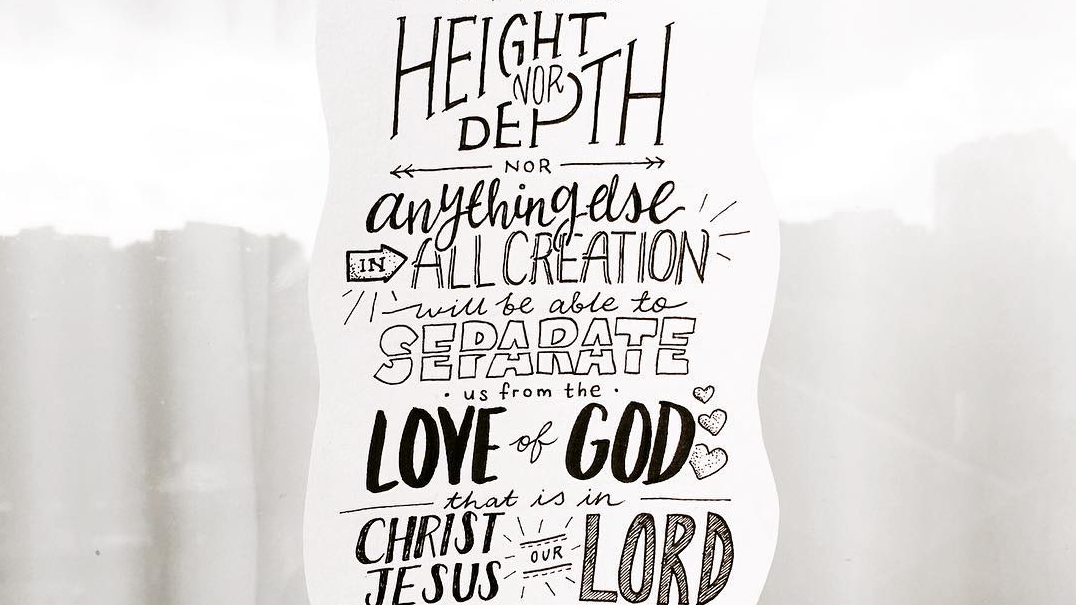 HEIGHT
NOR
DEPTH
NOR
anything else
IN ALL CREATION
will be able to
SEPARATE
· us from the ·
LOVE of GOD
that is in
CHRIST
JESUS OUR LORD